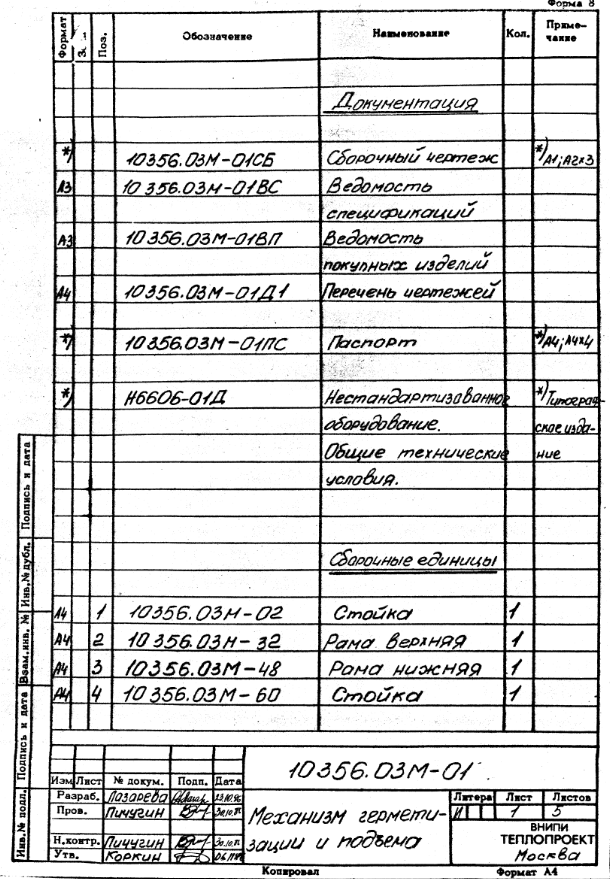 Форма 8
Формат З. Поз. Обозначение Наименование Кол. Приме-
чание
Документация
*) 10356.03М-01СБ Сборочный чертеж *) А1; А2х3
А3 10356.03М-01ВС Ведомость
спецификаций
А3 10356.03М-01ВП Ведомость
покупных изделий
А4 10356.03М-01Д1 Перечень чертежей
*) 10356.03М-01ПС Паспорт *) А4; А4х4
*) Н6606-01Д Нестандартизованное *) Типограф-
оборудование. ское изда-
Общие технические ние
условия.
Сборочные единицы
А4 1 10356.03М-02 Стойка 1
А4 2 10356.03М-32 Рама верхняя 1
А4 3 10356.03М-48 Рама нижняя 1
А4 4 10356.03М-60 Стойка 1
Подпись и дата
Инв.№ дубл.
Взам.инв. №
Подпись и дата
Инв.№ подл.
10356.03М-01
Изм Лист № докум. Подп. Дата
Разраб. Лазарева
Пров. Пичугин
Н.контр. Пичугин
Утв. Коркин
Механизм гермети-
зации и подъема
Литера Лист Листов
И 1 5
ВНИПИ
ТЕПЛОПРОЕКТ
Москва
Копировал Формат А4